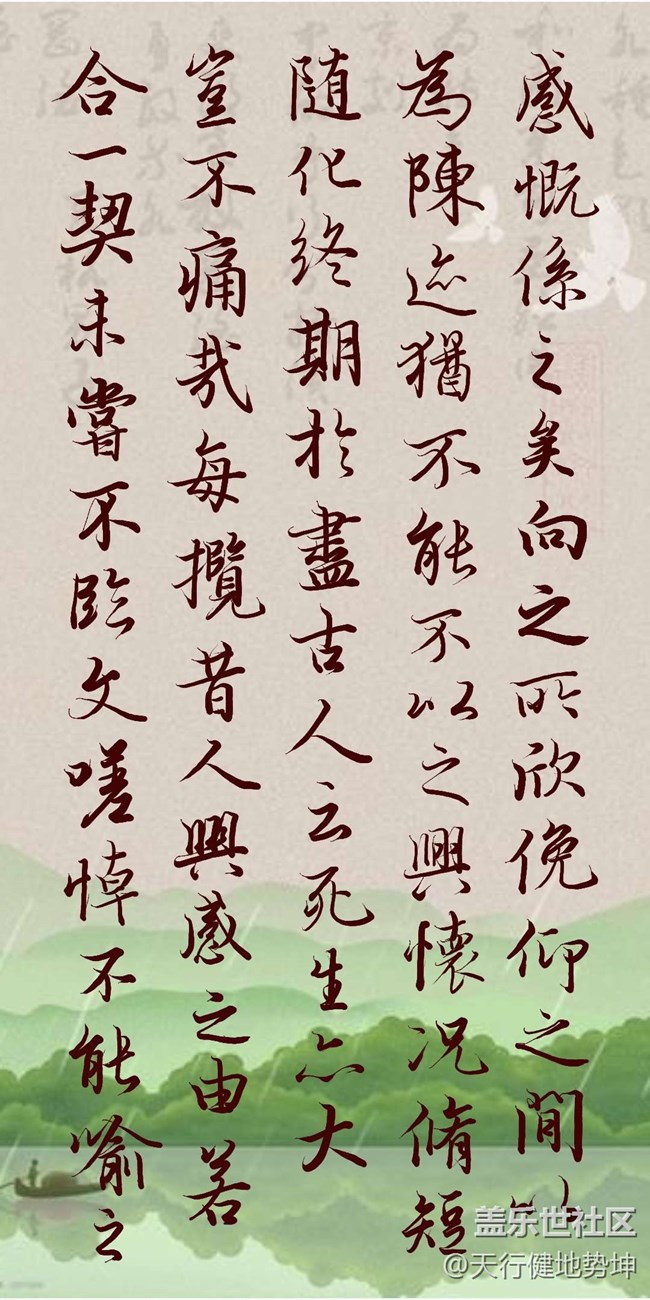 感慨係之矣向之所欣俛仰之間以
為陳迹猶不能不以之興懷况脩短
随化終期於盡古人云死生亦大
豈不痛哉每攬昔人興感之由若
合一契未嘗不臨文嗟悼不能喻之
盖乐世社区
@天行健地势坤